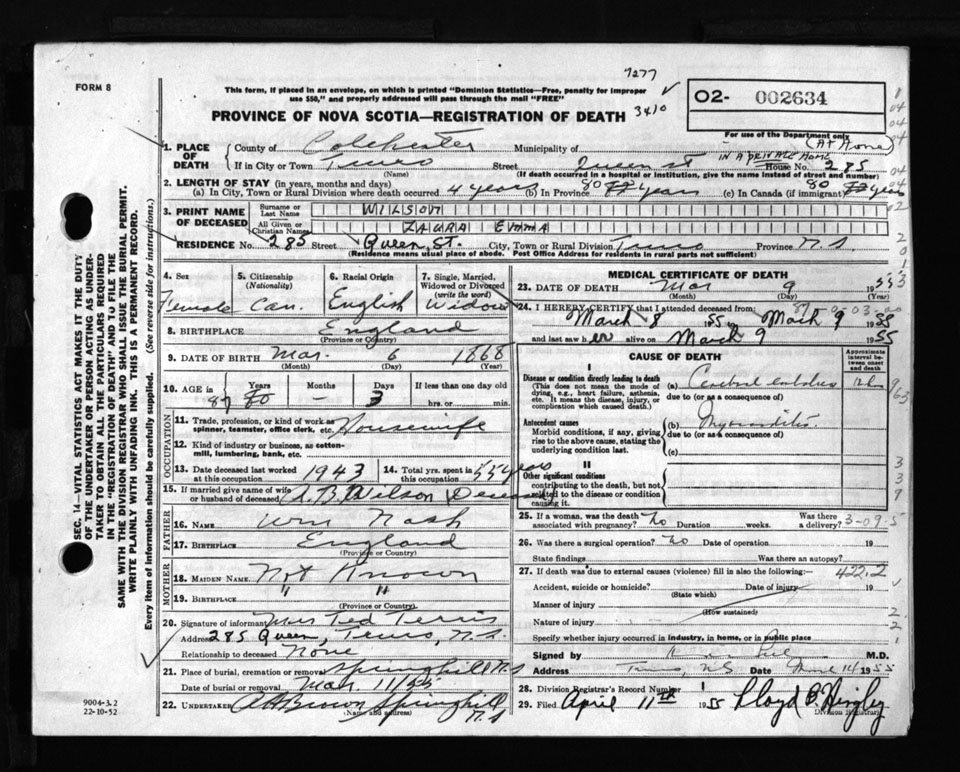 FORM 8
This form, if placed in an envelope, on which is printed "Dominion Statistics—Free, penalty for improper
use $50," and properly addressed will pass through the mail "FREE"
7277
3410
O2- 002634
PROVINCE OF NOVA SCOTIA—REGISTRATION OF DEATH
For use of the Department only
(At Home)
1. PLACE OF DEATH County of Colchester Municipality of
If in City or Town Truro Street Queen St House No. 285
IN A PRIVATE HOME
(Name) (If death occurred in a hospital or institution, give the name instead of street and number)
2. LENGTH OF STAY (in years, months and days)
(a) In City, Town or Rural Division where death occurred 4 years (b) In Province 80 77 years (c) In Canada (if immigrant) 80 77 years
3. PRINT NAME OF DECEASED Surname or Last Name WILSON
All Given or Christian Names EMMA
RESIDENCE No. 285 Street Queen St. City, Town or Rural Division Truro Province N.S
(Residence means usual place of abode. Post Office Address for residents in rural parts not sufficient)
4. Sex Female
5. Citizenship (Nationality) Can.
6. Racial Origin English
7. Single, Married, Widowed or Divorced (write the word) Widow
8. BIRTHPLACE England
(Province or Country)
9. DATE OF BIRTH Mar. 6 1868
(Month) (Day) (Year)
10. AGE in Years 87 80 Months — Days 3 If less than one day old hrs. or min.
OCCUPATION
11. Trade, profession, or kind of work as spinner, teamster, office clerk, etc. Housewife
12. Kind of industry or business, as cotton-mill, lumbering, bank, etc.
13. Date deceased last worked at this occupation 1943
14. Total yrs. spent in this occupation 55 years
15. If married give name of wife or husband of deceased A. B. Wilson Deceased
FATHER
16. NAME Wm Nash
17. BIRTHPLACE England
(Province or Country)
MOTHER
18. MAIDEN NAME Not Known
19. BIRTHPLACE " "
(Province or Country)
20. Signature of informant Mrs Ted Terris
Address 285 Queen, Truro, N.S.
Relationship to deceased None
21. Place of burial, cremation or removal Springhill N.S
Date of burial or removal Mar. 11/55
22. UNDERTAKER A H Brown Springhill N.S
(Name and address)
MEDICAL CERTIFICATE OF DEATH
23. DATE OF DEATH Mar 9 1955
(Month) (Day) (Year)
24. I HEREBY CERTIFY that I attended deceased from:
March 8 1955 to March 9 1955
and last saw her alive on March 9 1955
CAUSE OF DEATH
Approximate interval between onset and death
I
Disease or condition directly leading to death
(This does not mean the mode of dying, e.g., heart failure, asthenia, etc. It means the disease, injury, or complication which caused death.)
(a) Cerebral embolus
due to (or as a consequence of)
Antecedent causes
Morbid conditions, if any, giving rise to the above cause, stating the underlying condition last.
(b) Myocarditis
due to (or as a consequence of)
(c)
II
Other significant conditions
contributing to the death, but not related to the disease or condition causing it.
25. If a woman, was the death associated with pregnancy? No Duration weeks. Was there a delivery?
3-09-5
26. Was there a surgical operation? No Date of operation 19
State findings Was there an autopsy?
27. If death was due to external causes (violence) fill in also the following:—
422.2
Accident, suicide or homicide? Date of injury 19
(State which)
Manner of injury
(How sustained)
Nature of injury
Specify whether injury occurred in industry, in home, or in public place
Signed by M.D.
Address Truro, N.S Date 14 1955
28. Division Registrar's Record Number
29. Filed April 11th 1955 Lloyd B. Hingley
Division Registrar
SEC. 14—VITAL STATISTICS ACT MAKES IT THE DUTY
OF THE UNDERTAKER OR PERSON ACTING AS UNDER-
TAKER TO OBTAIN ALL THE PARTICULARS REQUIRED
IN THE "REGISTRATION OF DEATH" AND TO FILE THE
SAME WITH THE DIVISION REGISTRAR WHO SHALL ISSUE THE BURIAL PERMIT.
WRITE PLAINLY WITH UNFADING INK. THIS IS A PERMANENT RECORD.
Every item of information should be carefully supplied. (See reverse side for instructions.)
9004-3.2
22-10-52